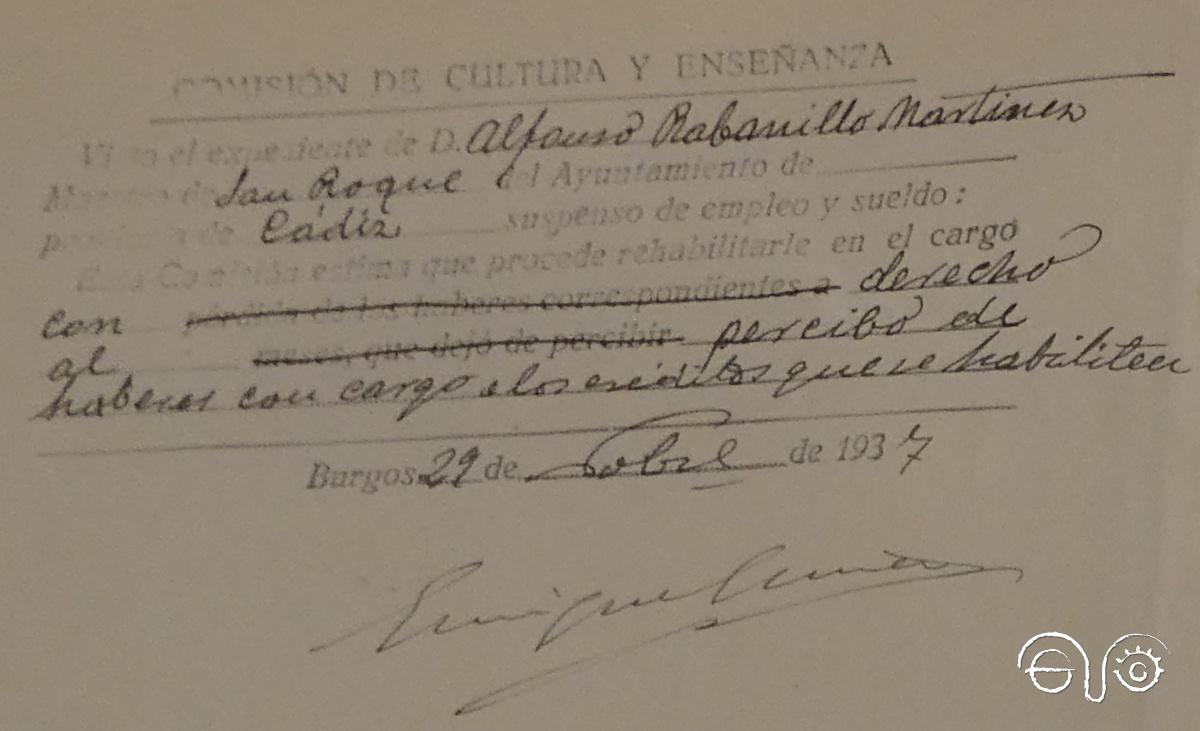 COMISIÓN DE CULTURA Y ENSEÑANZA
Visto el expediente de D. Alfonso Rabanillo Martinez
Maestro de San Roque del Ayuntamiento de
provincia de Cádiz suspenso de empleo y sueldo:
Esta Comisión estima que procede rehabilitarle en el cargo
con pérdida de los haberes correspondientes a derecho
al meses, que dejó de percibir percibo de
haberes con cargo a los créditos que se habiliten
Burgos 29 de de 1937
Enrique